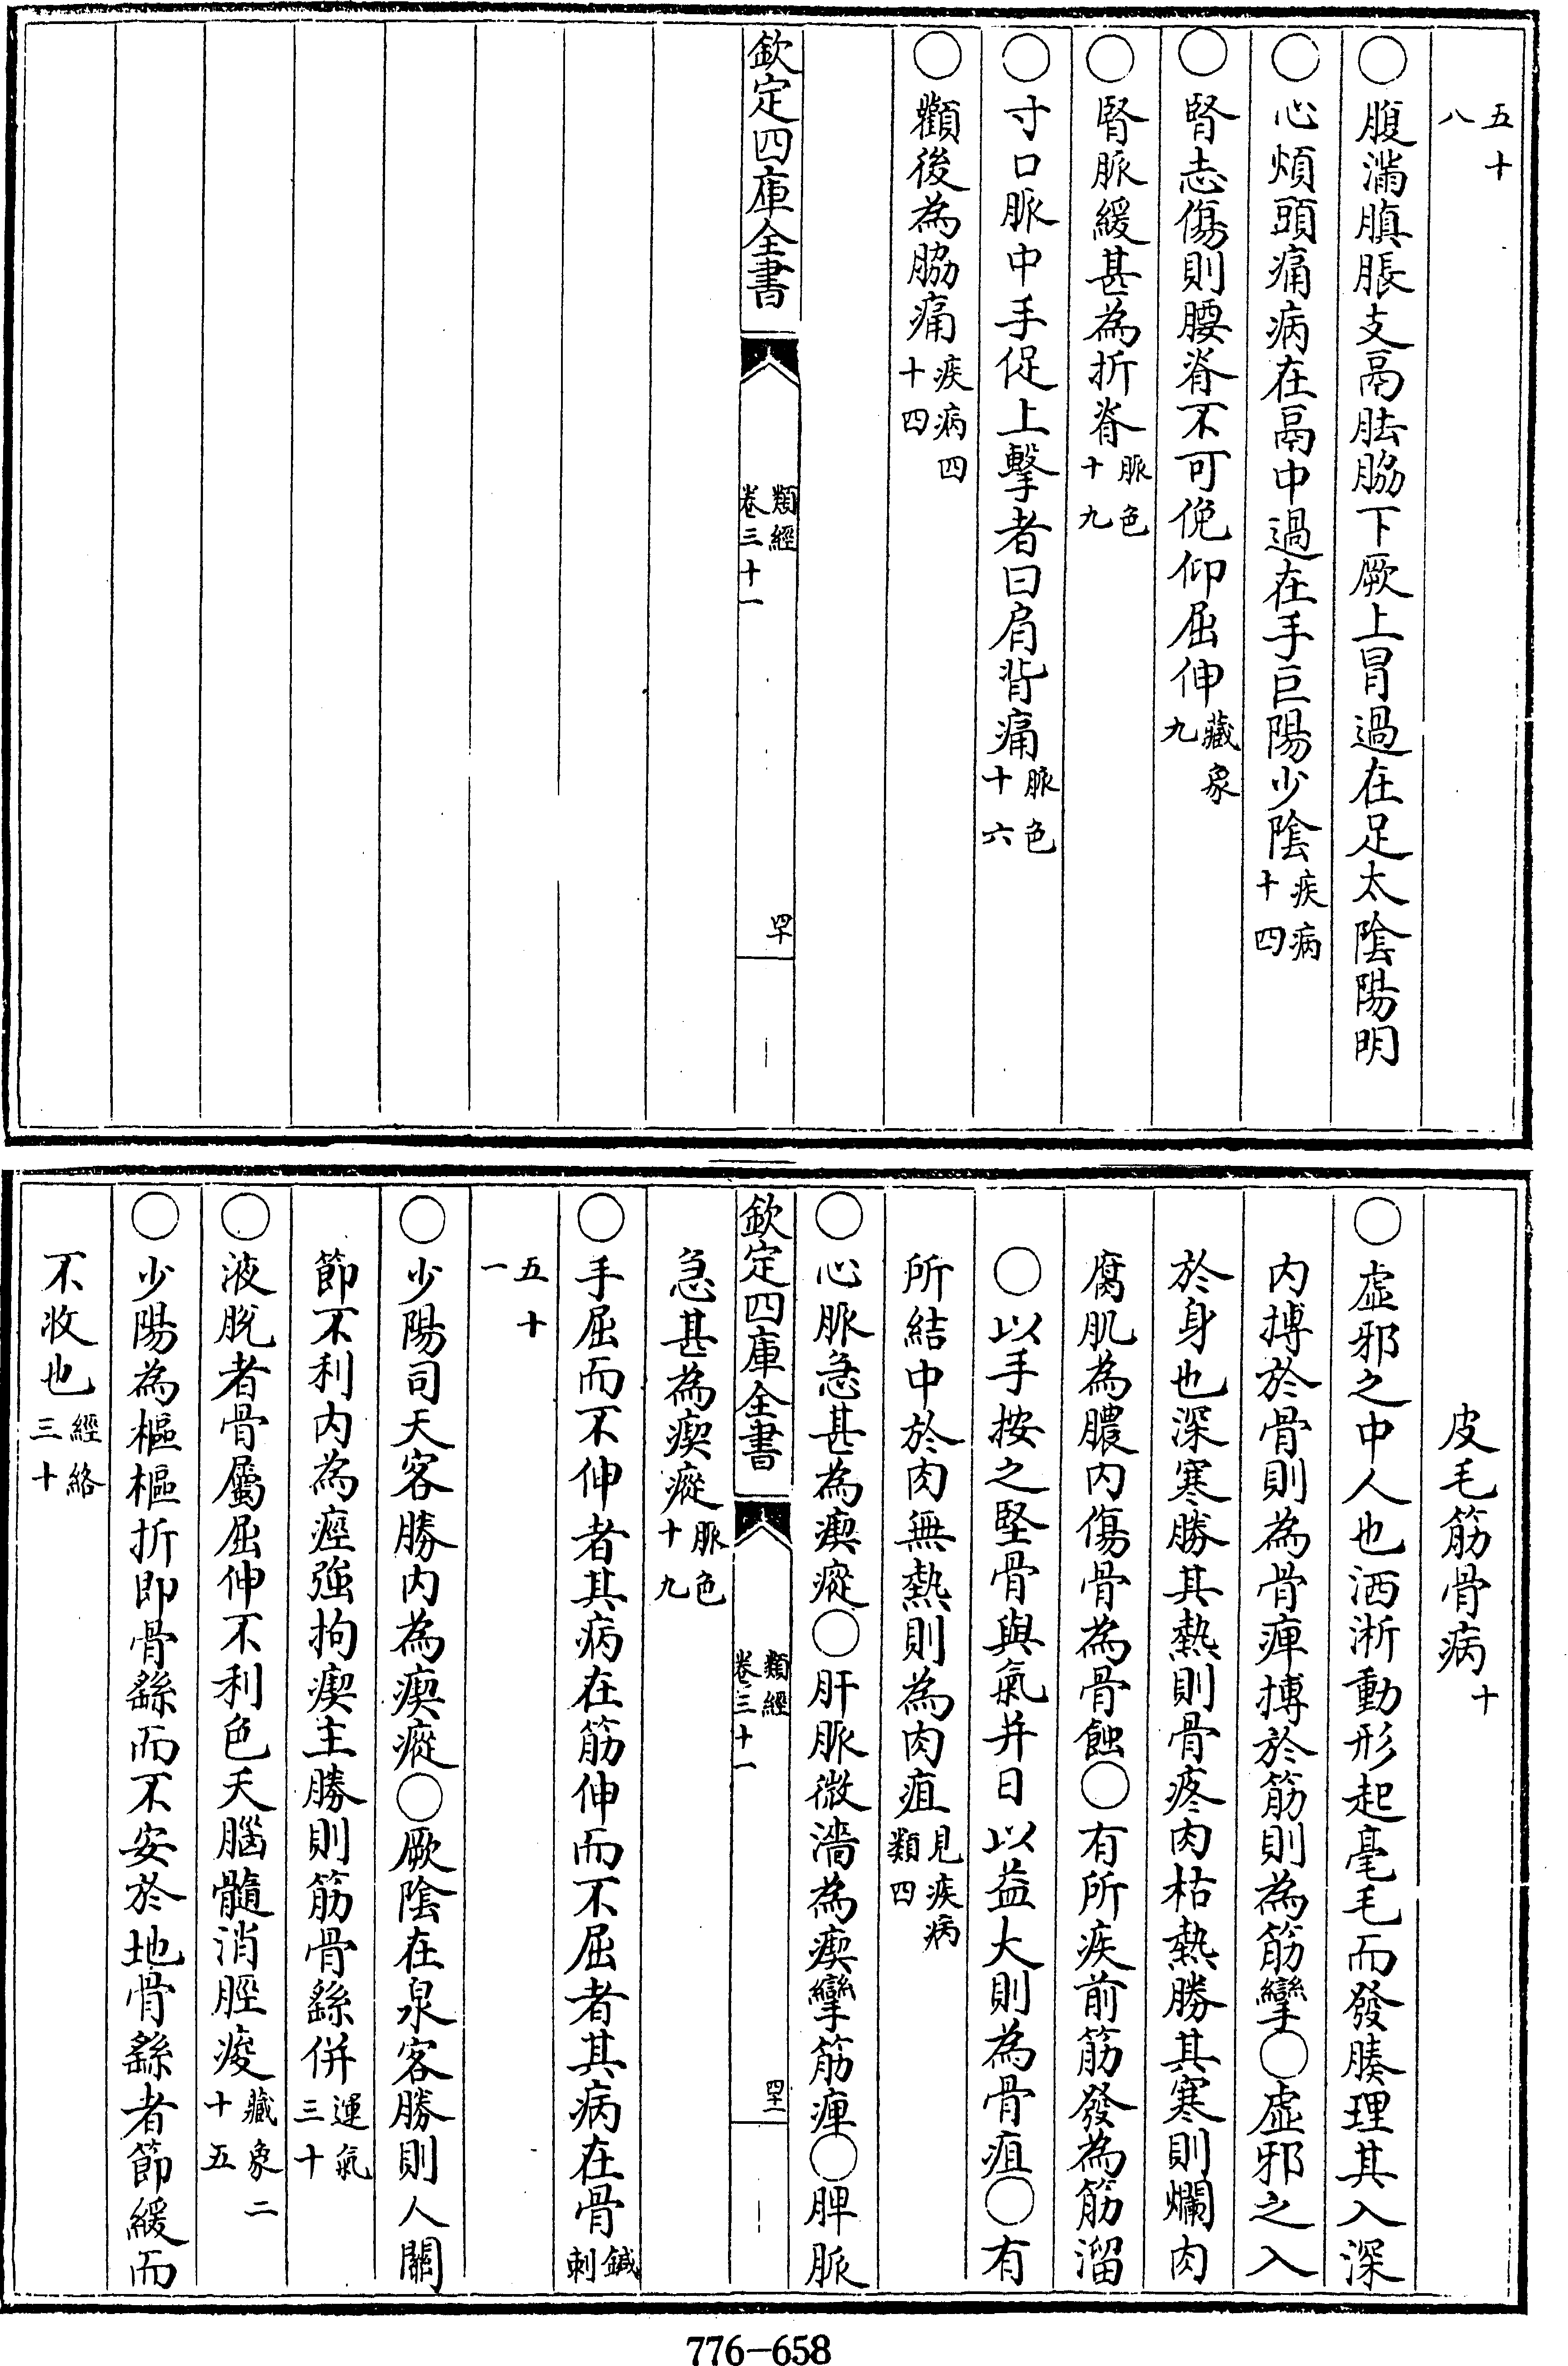 五十八
○腹滿䐜脹支鬲胠脇下厥上冒過在足太陰陽明
○心煩頭痛病在鬲中過在手巨陽少陰疾病十四
○腎志傷則腰脊不可俛仰屈伸藏象九
○腎脈緩甚為折脊脈色十九
○寸口脈中手促上擊者曰肩背痛脈色十六
○顴後為脇痛疾病四十四
欽定四庫全書
類經卷三十一
四十
皮毛筋骨病十
○虛邪之中人也洒淅動形起毫毛而發腠理其入深
内搏於骨則為骨痺搏於筋則為筋攣○虛邪之入
於身也深寒勝其熱則骨疼肉枯熱勝其寒則爛肉
腐肌為膿内傷骨為骨蝕○有所疾前筋發為筋溜
○以手按之堅骨與氣并日以益大則為骨疽○有
所結中於肉無熱則為肉疽見疾病類四
○心脈急甚為瘈瘲○肝脈微濇為瘈攣筋痺○脾脈
欽定四庫全書
類經卷三十一
四十一
急甚為瘈瘲脈色十九
○手屈而不伸者其病在筋伸而不屈者其病在骨鍼刺
五十一
○少陽司天客勝内為瘈瘲○厥陰在泉客勝則人關
節不利内為痙強拘瘈主勝則筋骨繇併運氣三十
○液脫者骨屬屈伸不利色夭腦髓消脛痠藏象二十五
○少陽為樞樞折即骨繇而不安於地骨繇者節緩而
不收也經絡三十
776-658